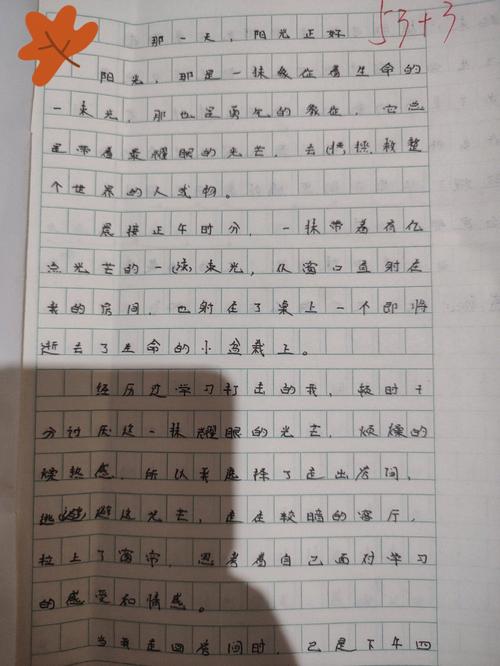 那一天，阳光正好
53+3
阳光，那是一抹象征着生命的
一束光，那也是勇气的象征，它总
是带着最耀眼的光芒，去拯救整
个世界的人或物。
晨接正午时分，一抹带着有亿
点光芒的一束光，从窗口直射在
我的房间，也射在了桌上一个即将
逝去了生命的小盆栽上。
经历过学习打击的我，较时十
分讨厌这一抹耀眼的光芒，烦燥的
燥热感，所以我选择了走出房间，
逃避这光芒，走在较暗的客厅，
拉上了窗帘，思考着自己面对学习
的感受和情感。
当我走回房间时，已是下午四